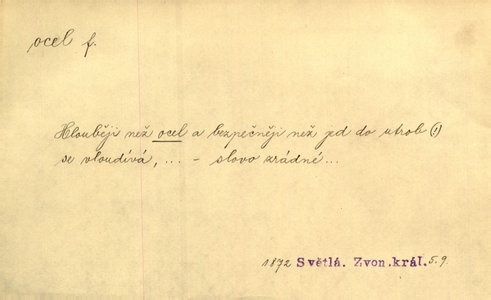 ocel f.
Hlouběji než ocel a bezpečněji než jed do utrob (!)
se vloudívá, ... – slovo zrádné...
1872 Světlá. Zvon.král. 5.9.